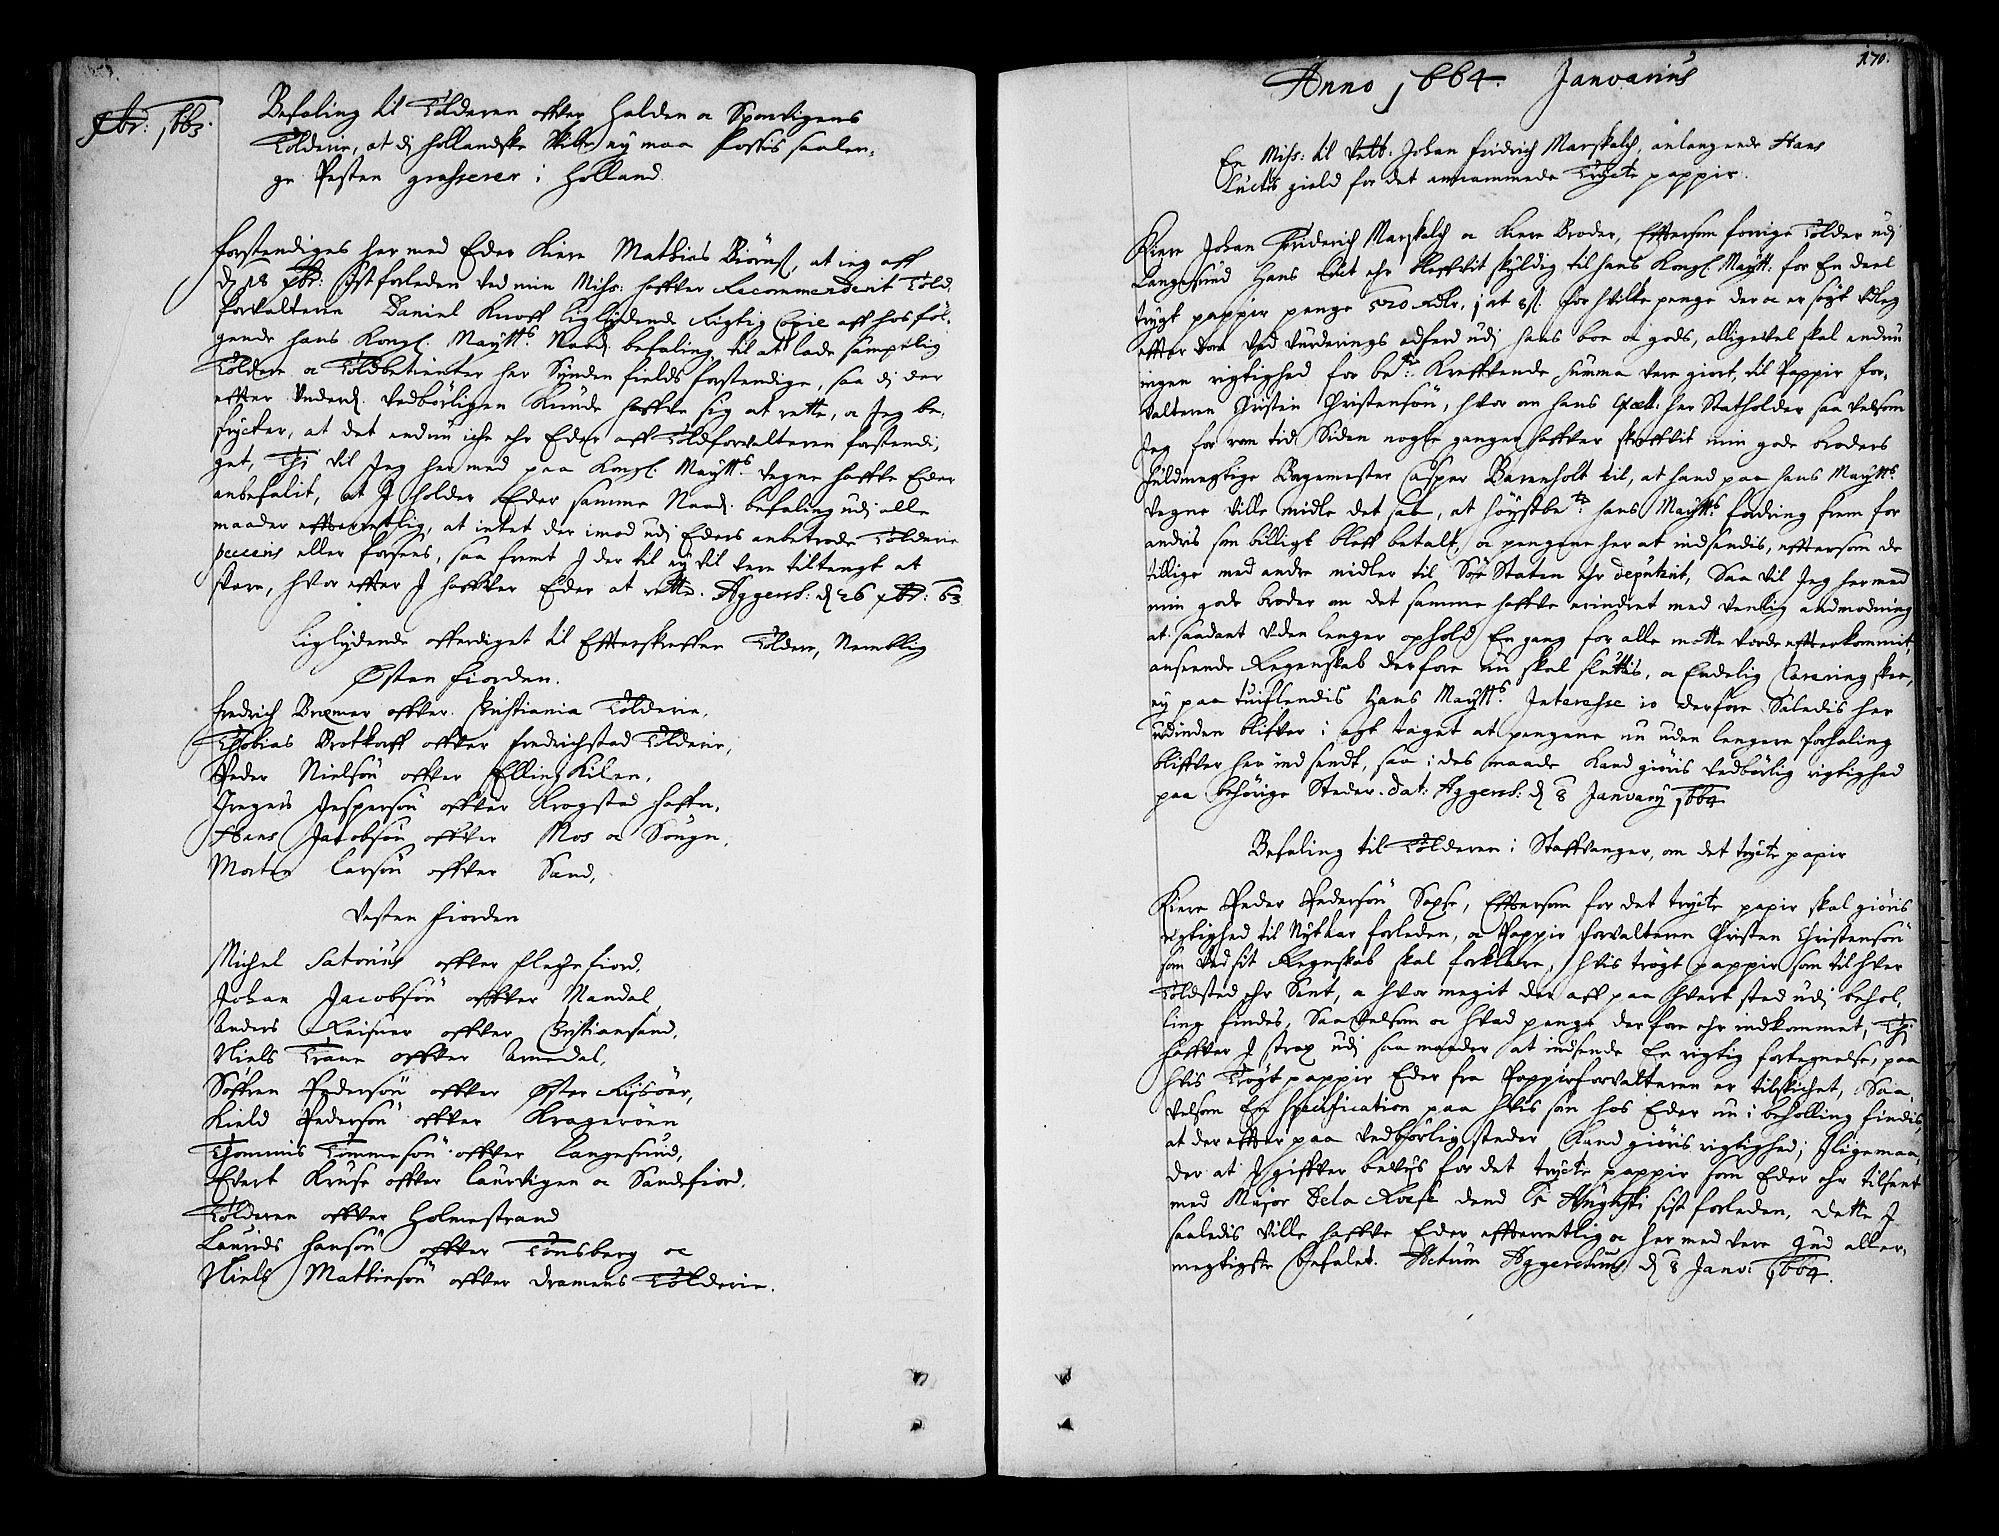 Xbr: 1663.
Befaling til Tolderen offver Halden oc Sponvigens
Tolderie, at di hollandske Skibe ey maa Lossis saalen-
ge Pesten grasserer i Holland.
Forstendiges her med Eder Kiere Mathias Biörnß, at ieg aff
d. 18 Xbr: Sistforleden ved min Miss: haffver Recommenderit Told
forvalteren Daniel Knoff liglydende Rigtig Copie aff hosföl-
gende hans Kongl. Maytts. Naad. befaling, til at lade sampelig
Toldere oc Toldbetienter her Synden fields forstendige, saa di der
effter Underd. vedbörligen Kunde haffve sig at rette, oc Jeg be-
frycter, at det endnu iche ehr Eder aff Toldforvalteren forstendi-
get, Thi vil Jeg her med paa Kongl. Maytts vegne haffve Eder
anbefalit, at I holder Eder samme Naad. befaling udj alle
maader effterrettlig, at intet der imod udj Eders anbetrode Tolderie
passeris eller forsees, saa fremt I der til ey vil vere tiltengt at
svare, hvor effter I haffver Eder at rette. Aggersh. d. 26 Xbr: 63
Liglydende offerdiget til Effterskreffne Toldere, Nemblig
Østen Fiorden.
Fredrich Bremer offver Christiania Tolderie,
Thobias Brotkorff offver Fredrichstad Tolderie,
Peder Nielsön offver Ellingkilen,
Gregers Jespersön offver Krogstad haffn,
Hans Jacobsön offver Mos oc Sougn,
Morten Larsön offver Sand,
Vesten Fiorden
Michel Satorius offver Flechefiord,
Johan Jacobsön offver Mandal,
Anders Reisner offver Christiansand,
Niels Trane offver Arnedal,
Söffren Pedersön offver Øster Risöer,
Kield Pedersön offver Krageröen
Thommis Tommesön offver Langesund,
Evert Kruse offver Laurvigen oc Sandefiord,
Tolderen offver Holmestrand
Laurids Hansön offver Tönsberg oc
Niels Mathiesön offver Dramens Tolderie.
170.
Anno 1664. Januarius
En Miss: til Velb. Johan Fridrich Marskalch, anlangende Hans
Luchts gield for det annammede Trycte pappir.
Kiere Johan Friderich Marskalch oc Kiere Broder, Efftersom forrige Tolder udj
Langesund Hans Lucht ehr bleffvit skyldig til hans Kongl. Maytt. for En deel
trygt pappir penge 520 Rdlr. 1 ort 8 s. for hvilke penge der oc er sögt Udleg
effter dom Ved Vurderings adferd udj hans boe oc gods, alligevel skal endnu
ingen rigtighed for bete. Kreffvende summa vere giort, til Pappir for-
valteren Christen Christensön, hvor om hans Excell. her Statholder saa velsom
Jeg for rom tid Siden nogle ganger haffver skreffvit min gode broders
fuldmegtige Bergemester Casper Barenholt til, at hand paa hans Maytts.
Vegne ville midle det saa, at höystbete. hans Maytts. fordring frem for
andris som billigt bleff betalt, oc pengene her at indsendis, eftersom de
tillige med andre midler til Söe Staten ehr deputerit, Saa vil Jeg her med
min gode broder om det samme haffve erindret med venlig andmodning
at saadant uden lenger ophold En gang for alle motte vorde effterkommit,
anseende Regenskab derfore nu skal sluttis, oc Endelig Clarering skee,
ey paa tuiflendis Hans Maytts. Interesse io derfore Saledis her
udinden blifver i agt taget at pengene nu uden lengere forhaling
bliffver her ind sendt, saa i des maade Kand giöris vedbörlig rigtighed
paa behörige Steder. Dat: Aggersh: d. 8 January 1664
Befaling til Tolderen i Staffvanger, om det trycte papir
Kiere Peder Pedersön Saxse, Efftersom for det trycte papir skal giöris
rigtighed til Nytaar forleden, oc Pappir forvalteren Christen Christensön
som ved sit Regenskab skal forklare, hvis trögt pappir som til hver
Toldsted ehr Sent, oc hvor megit der aff paa hvert sted udj behol-
ling findes, Saa velsom oc hvad penge derfore ehr indkommet, Thj
haffver I strax udj saa maader at indsende En rigtig fortegnelse, paa
hvis Trögt pappir Eder fra Pappirforvalteren er tilskichet, Saa
velsom En specification paa hvis som hos Eder nu i beholling findis,
at der effter paa vedbörlig steder Kand giöris rigtighed; Iligemaa-
der at I giffver bevis for det trycte pappir som Eder ehr tilsent
med Major Dela Rose dend 15 Augusti sist forleden, dette I
saaledis ville haffve Eder effterretlig oc her med vere Gud aller-
megtigste befalet. Actum Aggershus d. 8 Janv: 1664.